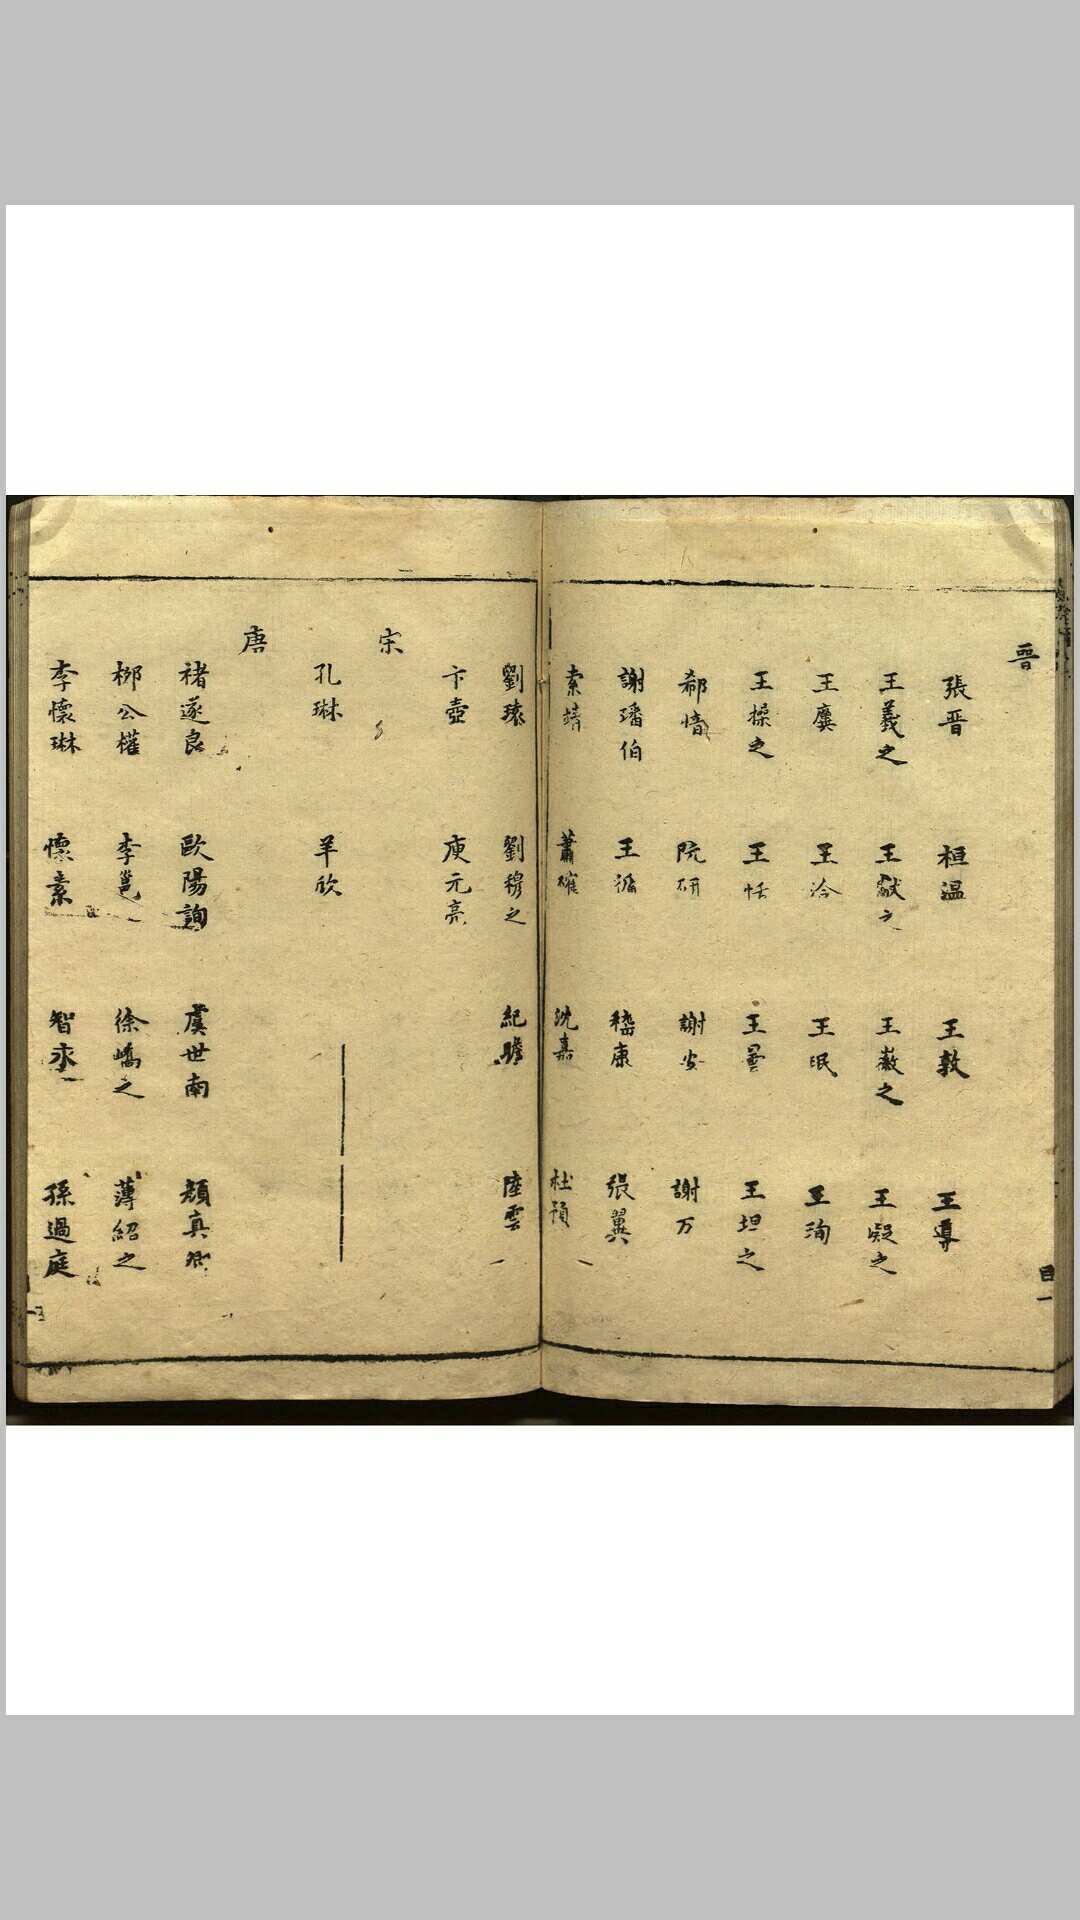 晉
張晋 桓温 王敦 王導
王羲之 王獻之 王薇之 王凝之
王廙 王洽 王珉 王洵
王操之 王恬 王曇 王坦之
郗愔 阮研 謝安 謝万
謝璠伯 王循 嵇康 張翼
索靖 蕭確 沈嘉 杜預
劉瓌 劉穆之 紀瞻 陸雲
卞壺 庾元亮
宋
孔琳 羊欣
唐
褚遂良 歐陽詢 虞世南 顏真卿
柳公權 李邕 徐嶠之 薄紹之
李懷琳 懷素 智永 孫過庭
目一